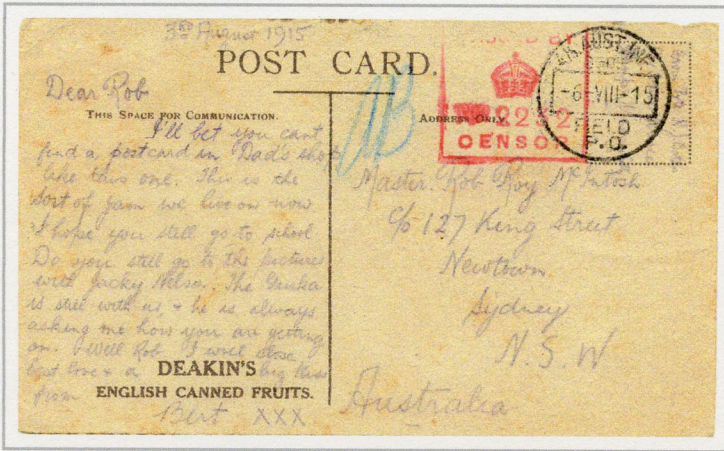 3rd August 1915
POST CARD.
Dear Rob
THIS SPACE FOR COMMUNICATION.
I'll bet you cant
find a postcard in Dad's shop
like this one. This is the
sort of jam we live on now
I hope you still go to school
Do you still go to the pictures
with Jacky Nelson. The
is still with us, + he is always
asking me how you are getting
on. Well Rob I will close
best love + a big kiss
from
Bert XXX
DEAKIN'S
ENGLISH CANNED FRUITS.
ADDRESS ONLY.
BY
CENSOR
AUST. INF
-6 VIII-15
FIELD
P.O.
Master. Rob Roy McIntosh
c/o 127 King Street
Newtown
Sydney
N.S.W
Australia